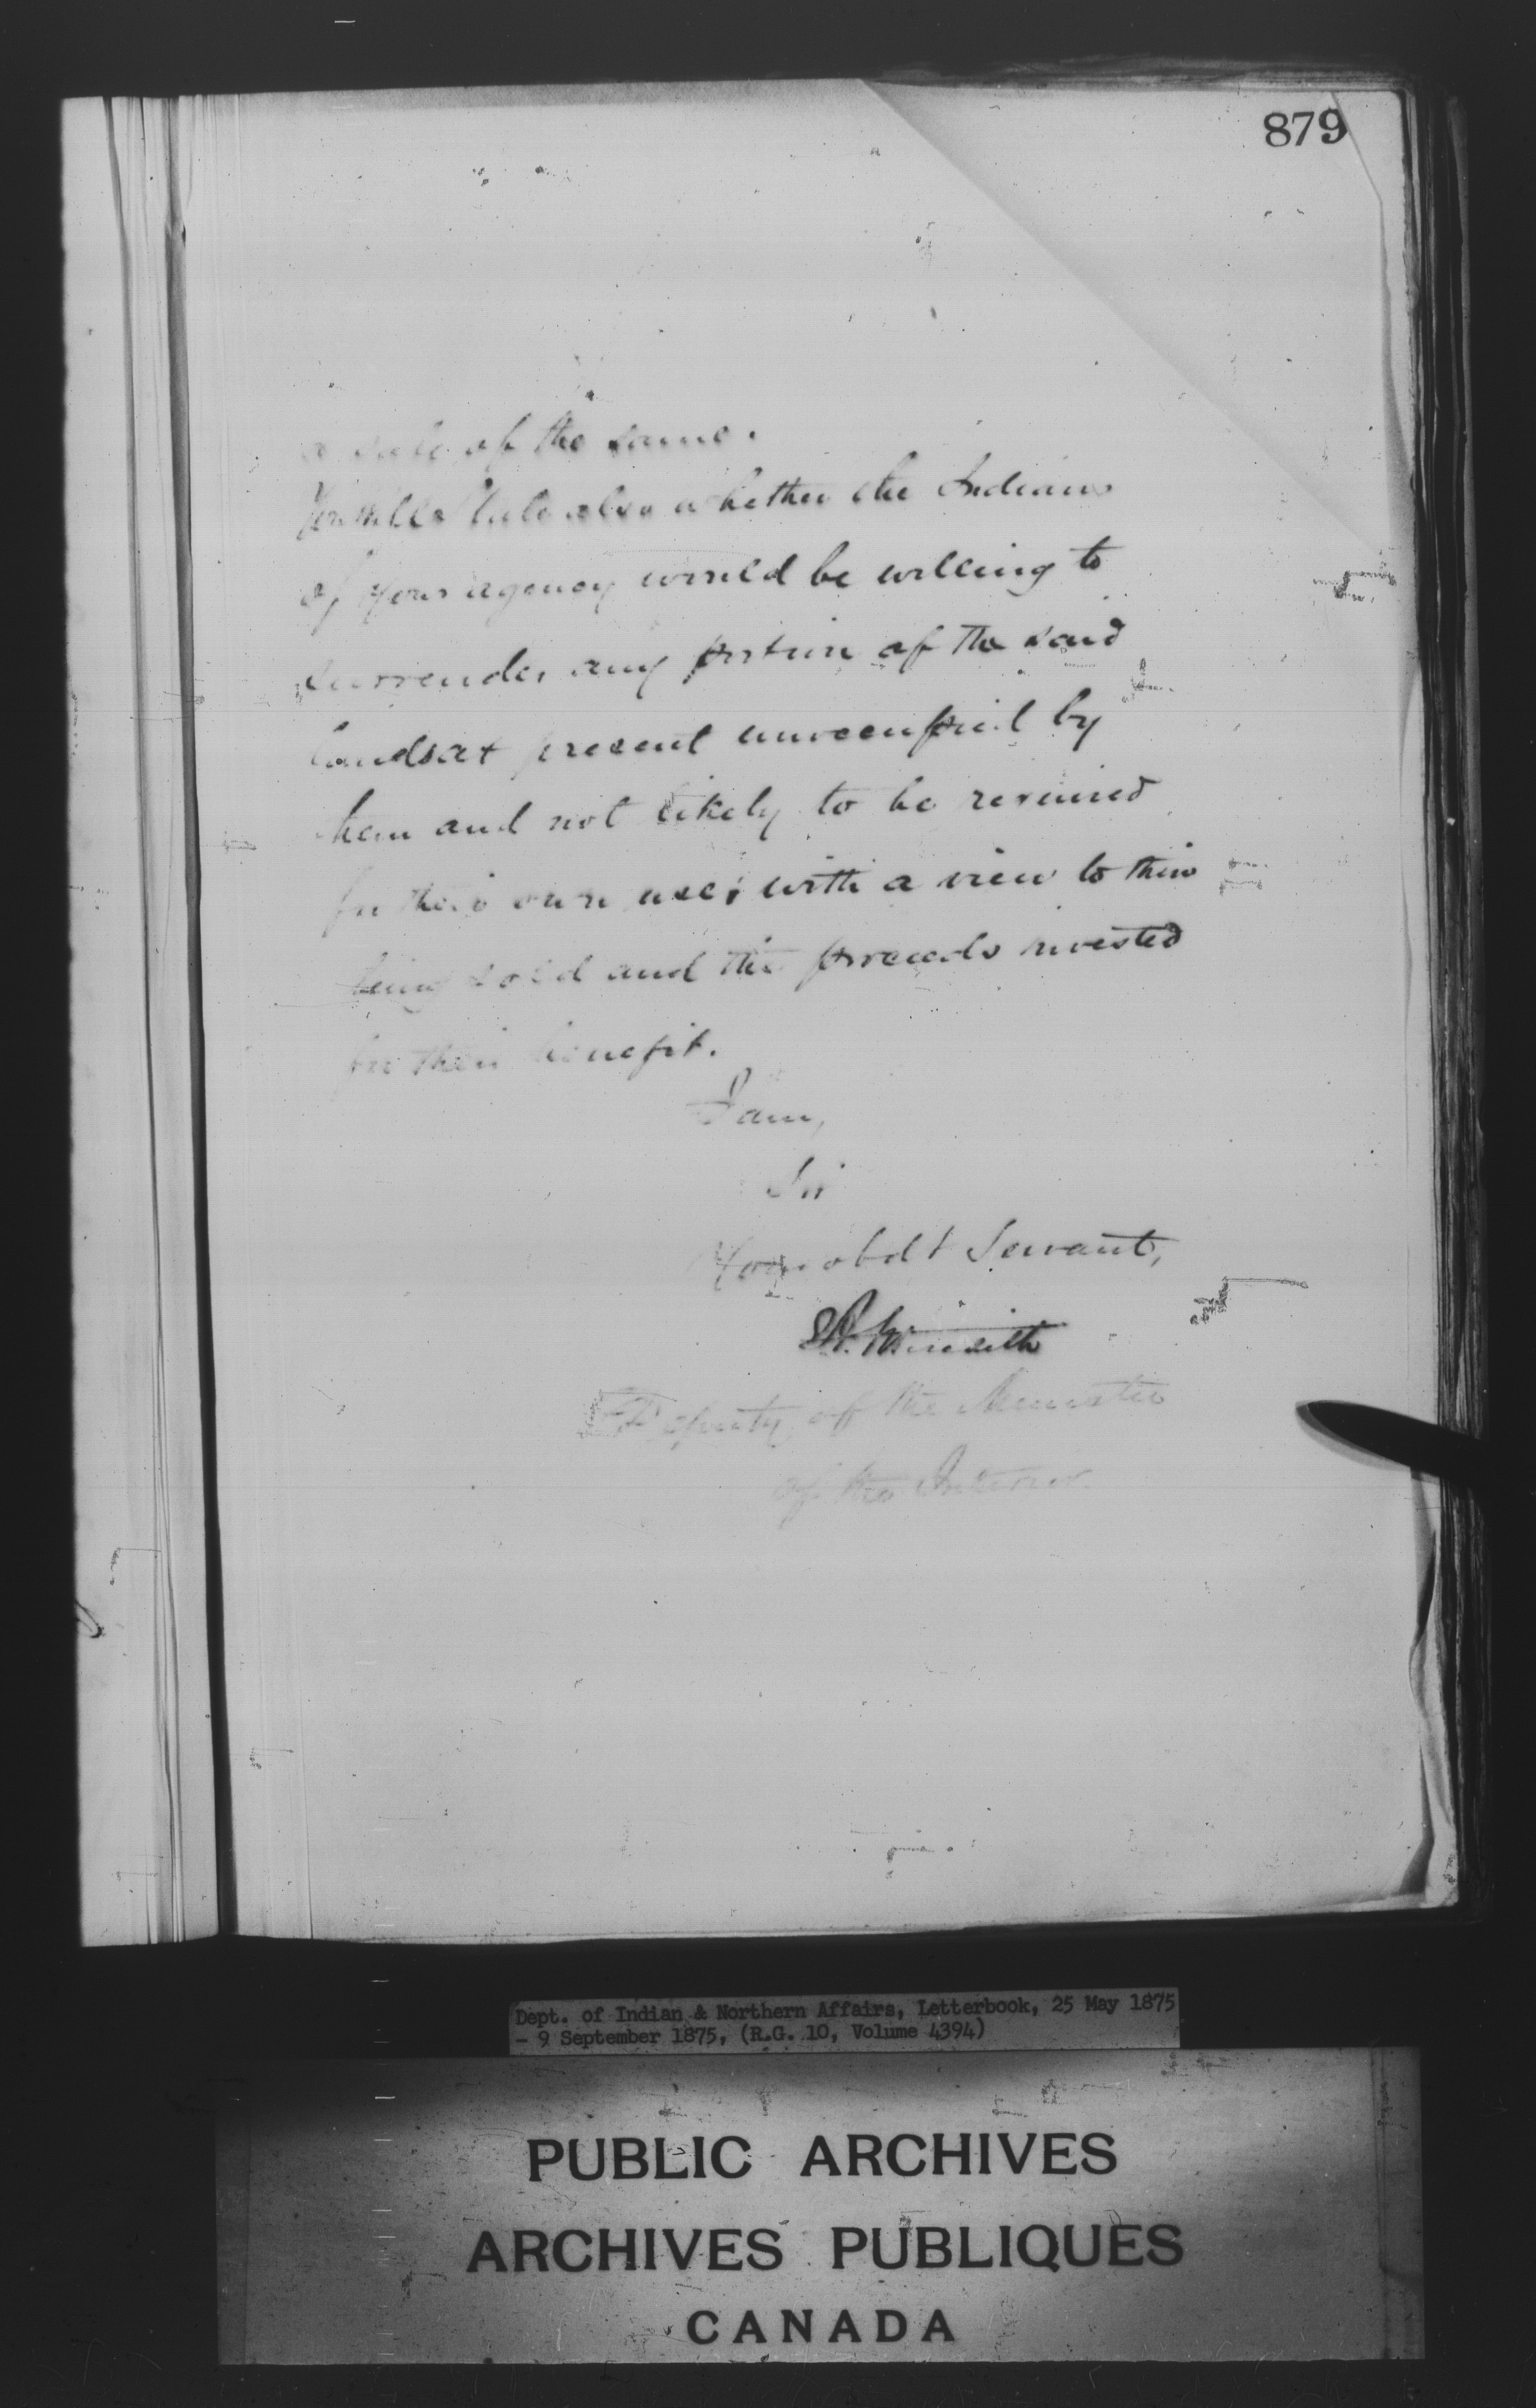 879
a sale of the same.
You will state also whether the Indians
of your agency would be willing to
surrender any portion of the said
lands at present unoccupied by
them and not likely to be required
for their own use, with a view to their
being sold and the proceeds invested
for their benefit.
I am,
Sir
Your obdt Servant,
Deputy of the Minister
of the Interior.
Dept. of Indian & Northern Affairs, Letterbook, 25 May 1875
- 9 September 1875, (R.G. 10, Volume 4394)
PUBLIC ARCHIVES
ARCHIVES PUBLIQUES
CANADA